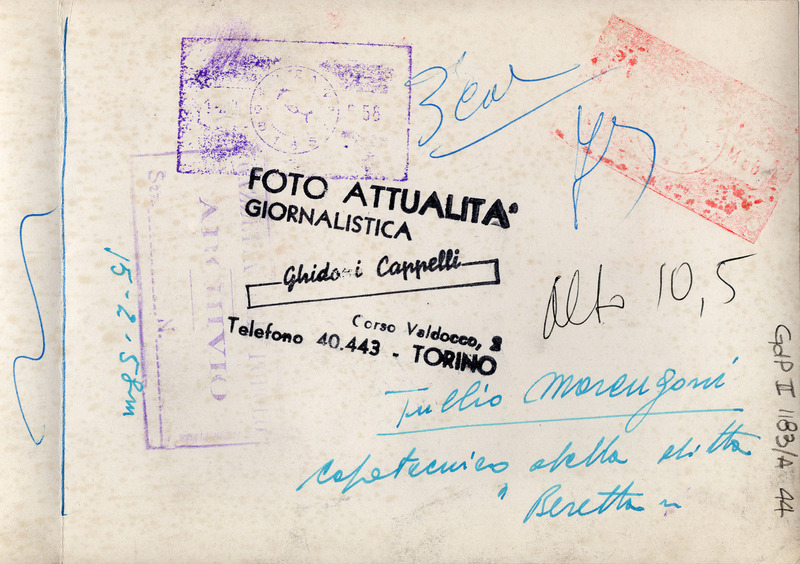 3 col
FOTO ATTUALITA'
GIORNALISTICA
Ghidoni Cappelli
Corso Valdocco, 2
Telefono 40.443 - TORINO
58
ARCHIVIO
N.
15-2-58m
alto 10,5
Tullio Marengoni
capotecnico della ditta
"Beretta"
GdP II 1183/4 44